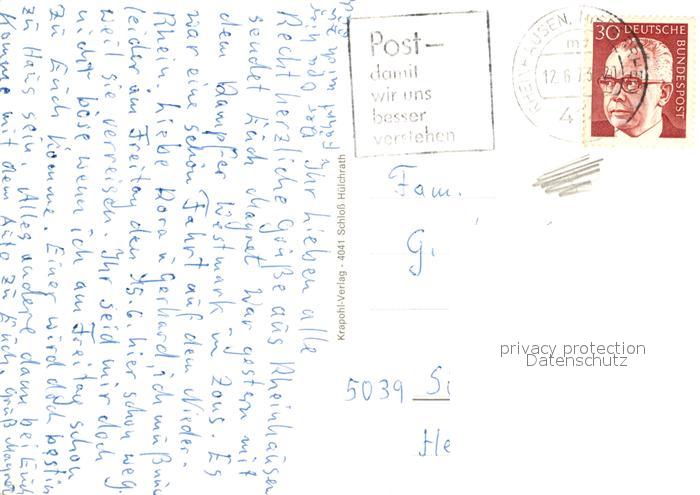 Ihr lieben alle
Recht herzliche Grüße aus Rheinhausen
sendet Euch Magnet War gestern mit
dem Dampfer Westmark in Zons. Es
war eine schön Fahrt auf dem Nieder-
Rhein. liebe Rora u Gerhard, ich muß nun
leider am Freitag den 15.6. hier schon weg.
weil sie verreisen. Ihr seid mir doch
nicht böse wenn ich am Freitag schon
zu Euch komme. Einer wird doch bestim
zu Haus sein. Alles andere dann bei Euch
komme mit dem Auto zu Euch, Gruß Magnet
Krapohl-Verlag - 4041 Schloß Hülchrath
Post-
damit
wir uns
besser
verstehen
RHEINHAUSEN
12.6.73
30 DEUTSCHE
BUNDESPOST
Fam.
G.
5039 Si
He
privacy protection
Datenschutz